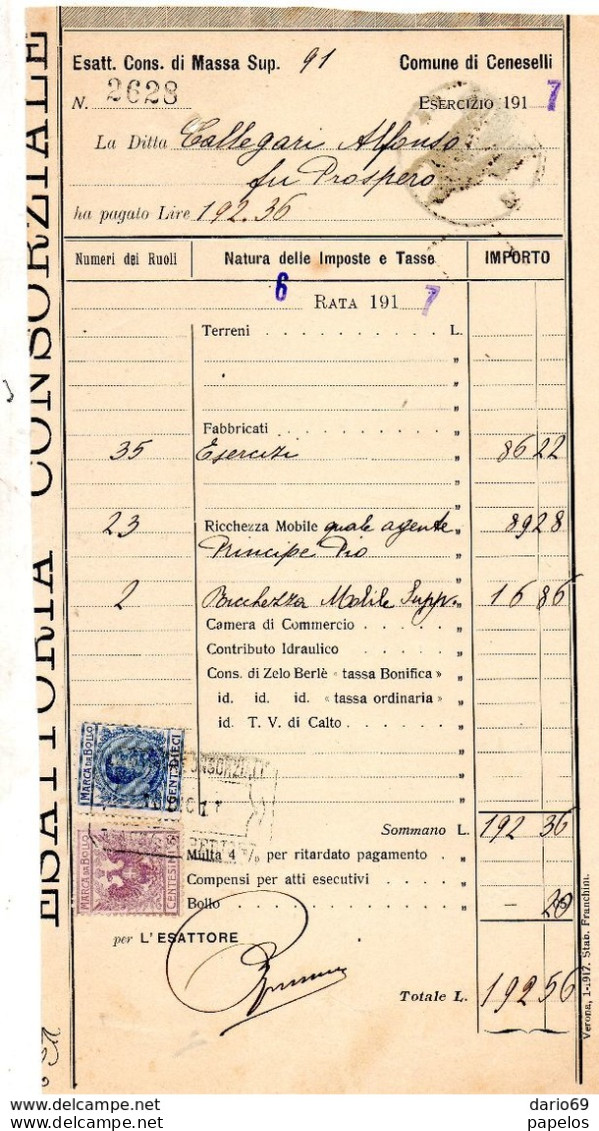 ESATTORIA CONSORZIALE
Esatt. Cons. di Massa Sup. 91 Comune di Ceneselli
N. 2628 ESERCIZIO 1917
La Ditta Callegari Alfonso
fu Prospero
ha pagato Lire 192.36
Numeri dei Ruoli Natura delle Imposte e Tasse IMPORTO
6 RATA 1917
Terreni L.
Fabbricati "
35 Esercizi " 86 22
23 Ricchezza Mobile quale agente " 89 28
Principe Pio "
2 Ricchezza Mobile Supp. " 16 86
Camera di Commercio "
Contributo Idraulico "
Cons. di Zelo Berlè « tassa Bonifica »
id. id. id. « tassa ordinaria »
id. T. V. di Calto "
MARCA DA BOLLO
CENT. DIECI
MARCA DA BOLLO
CENTESIMI
Sommano L. 192 36
Multa 4 % per ritardato pagamento "
Compensi per atti esecutivi "
Bollo " — 20
per L'ESATTORE
Totale L. 192 56
Verona, 1-917. Stab. Franchini.
dario69
papelos